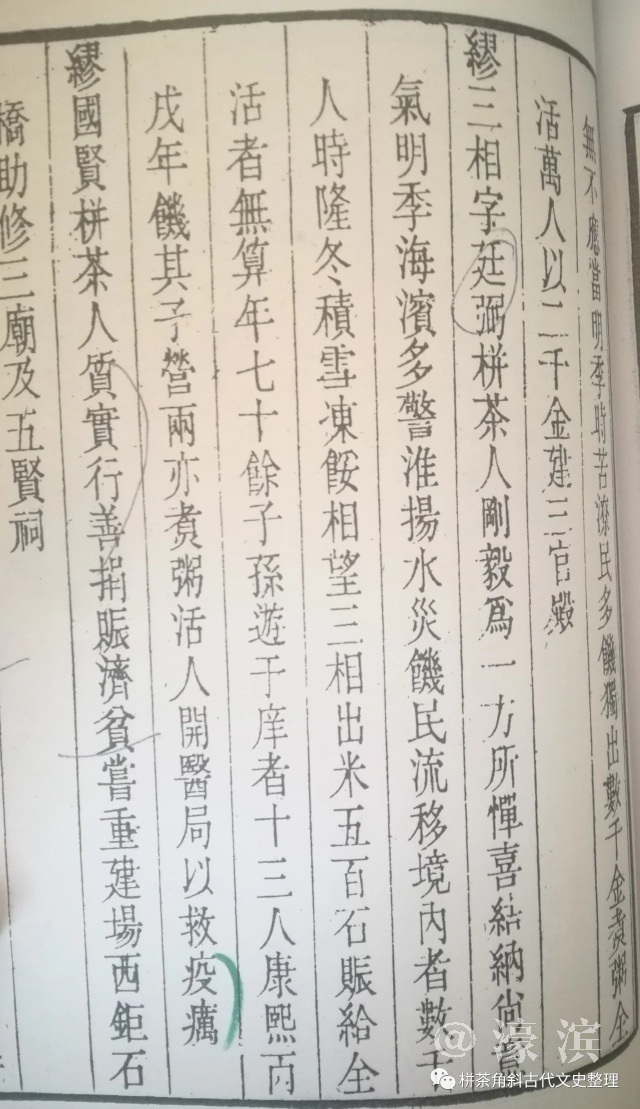 無不應當明季時苦潦民多饑獨出數千金煑粥全
活萬人以二千金建三官殿
繆三相字廷弼栟茶人剛毅爲一方所憚喜結納尙意
氣明季海濱多警淮揚水災饑民流移境內者數千
人時隆冬積雪凍餒相望三相出米五百石賑給全
活者無算年七十餘子孫遊于庠者十三人康熙丙
戌年饑其子營兩亦煑粥活人開醫局以救疫癘
繆國賢栟茶人質實行善捐賑濟貧嘗重建場西鉅石
橋助修三廟及五賢祠
@濠滨
栟茶角斜古代文史整理